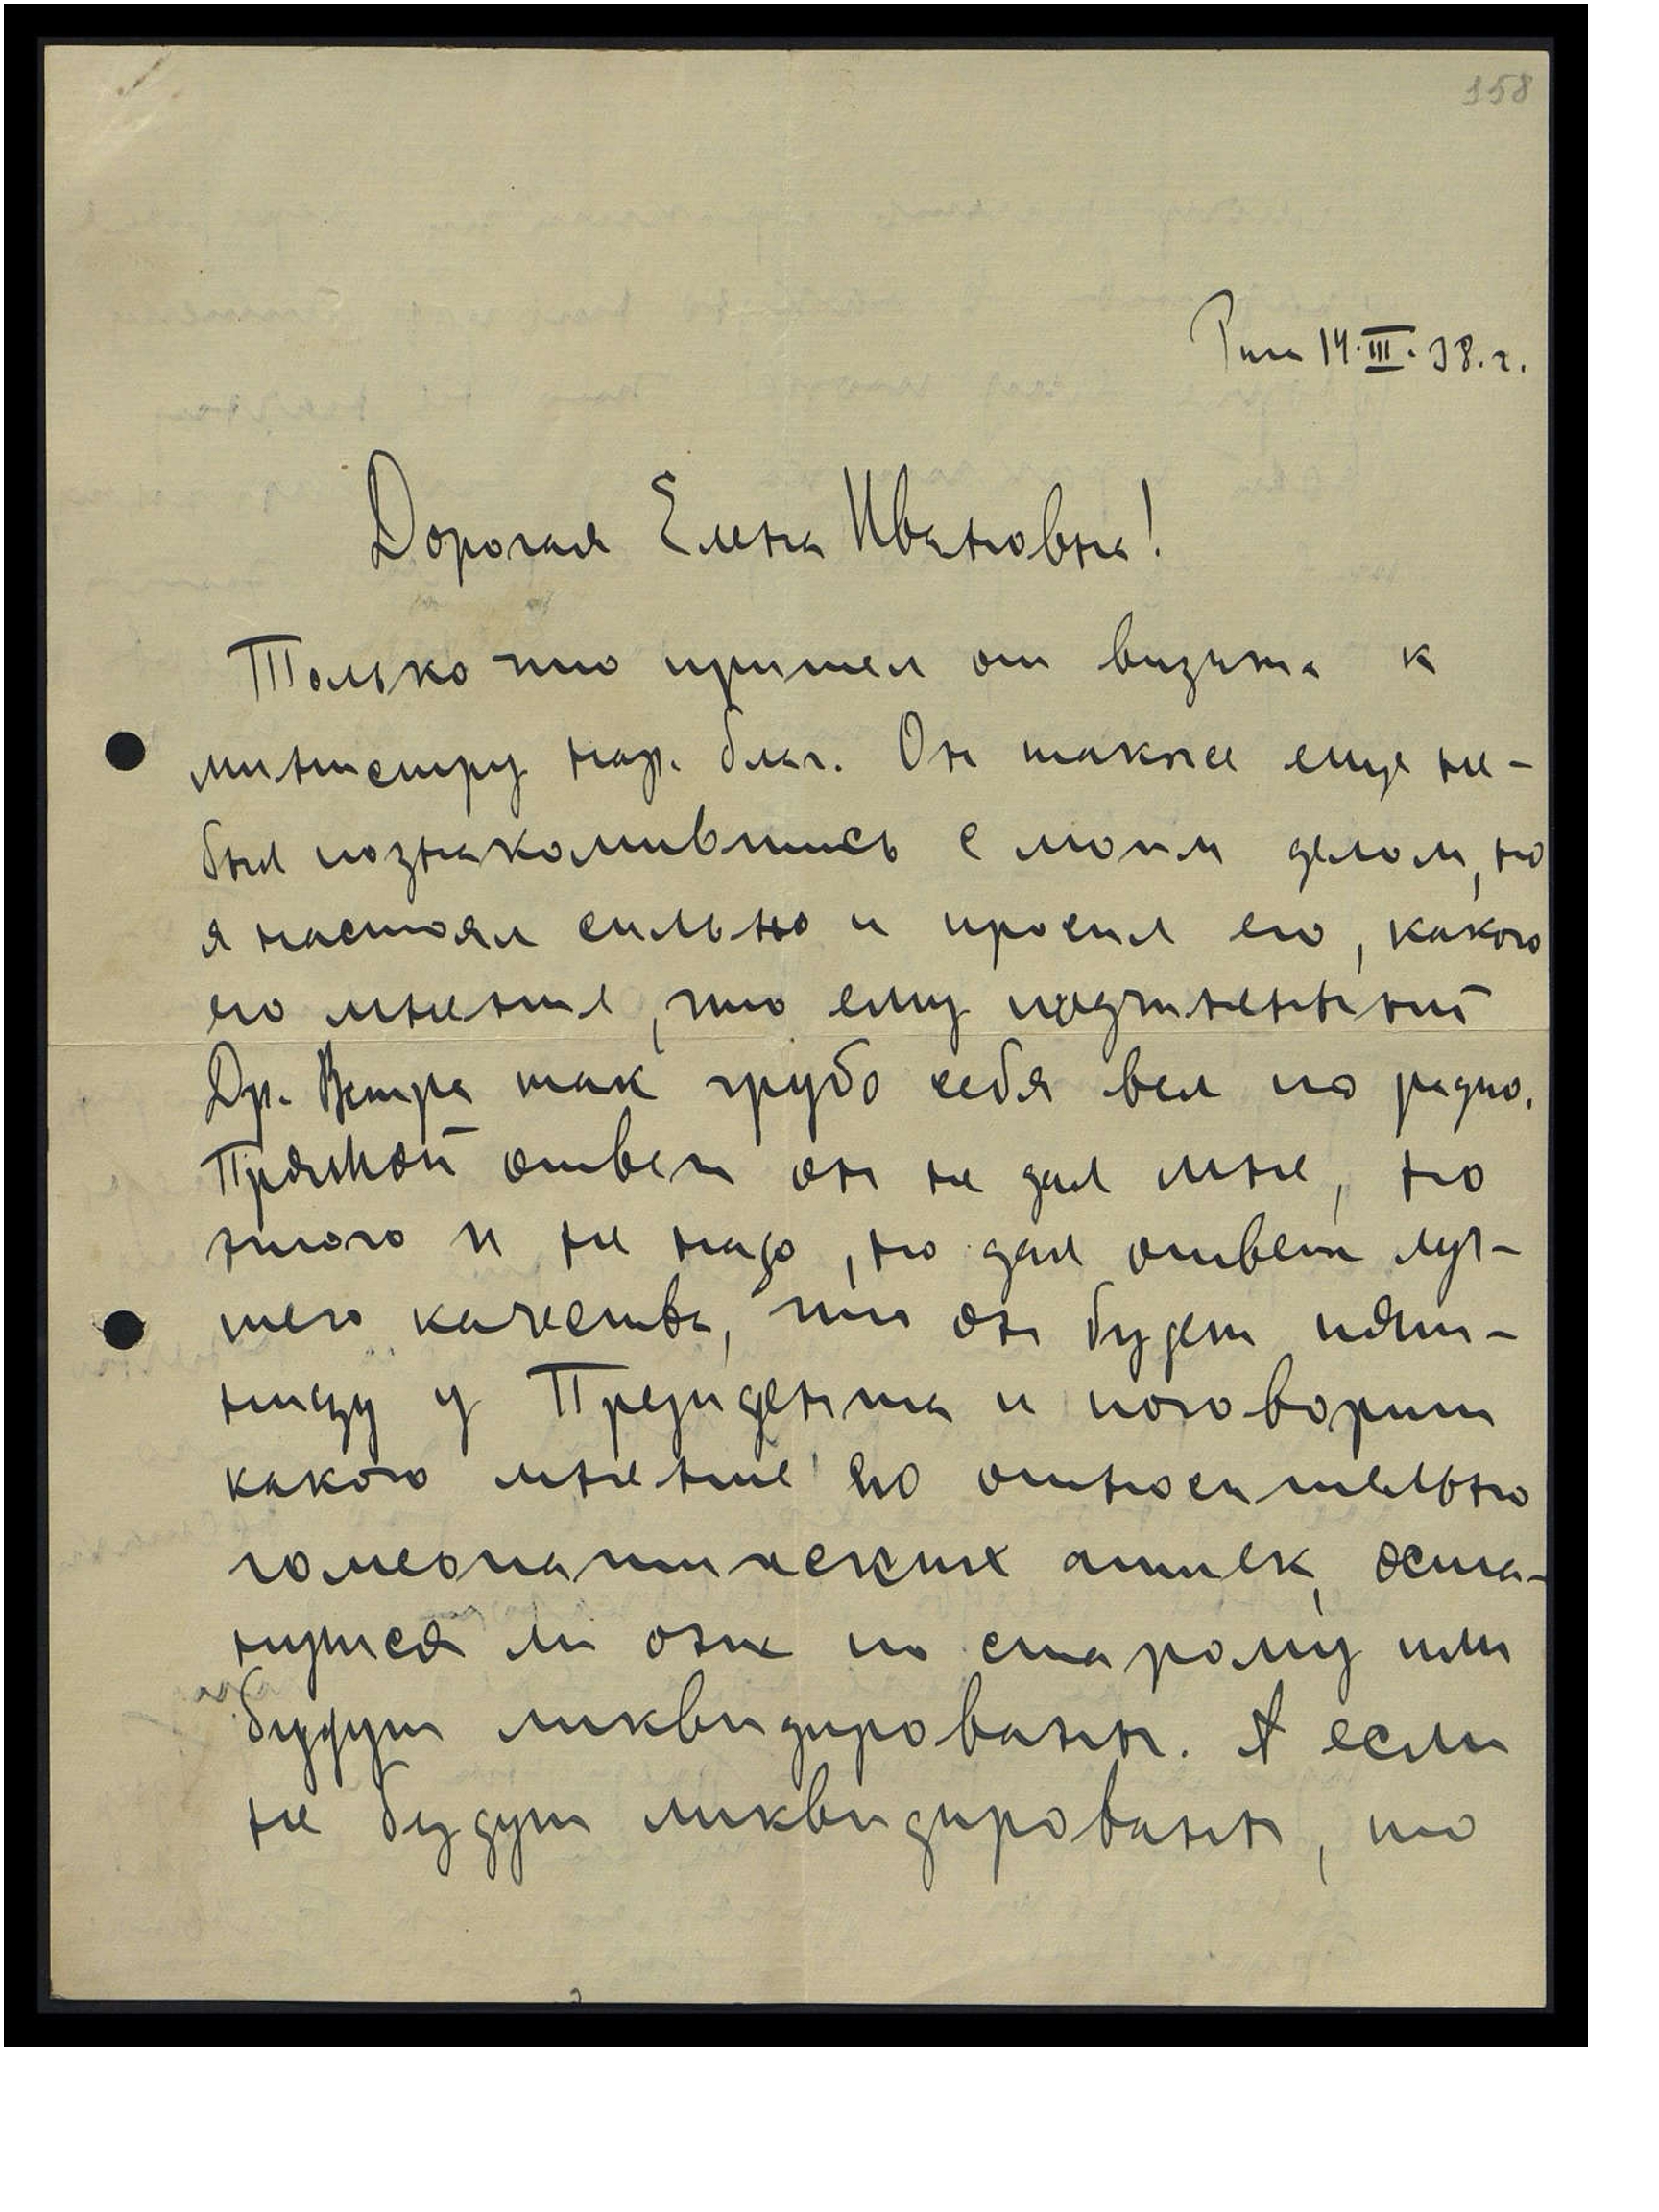 158
Рига 14.III.38.г.
Дорогая Елена Ивановна!
Только что пришел от визита к
министру нар. благ. Он также еще не-
был познакомившись с моим делом, но
я настоял сильно и просил его, какого
его мнение, что ему подчиненный
Др. Ветра так грубо себя вел по радио.
Прямой ответ он не дал мне, но
этого и не надо, но дал ответ луч-
шего качества, что он будет пят-
ницу у Президента и поговорит
какого мнение его относительно
гомеопатических аптек, оста-
нутся ли они по старому или
будут ликвидированы. А если
не будут ликвидированы, то